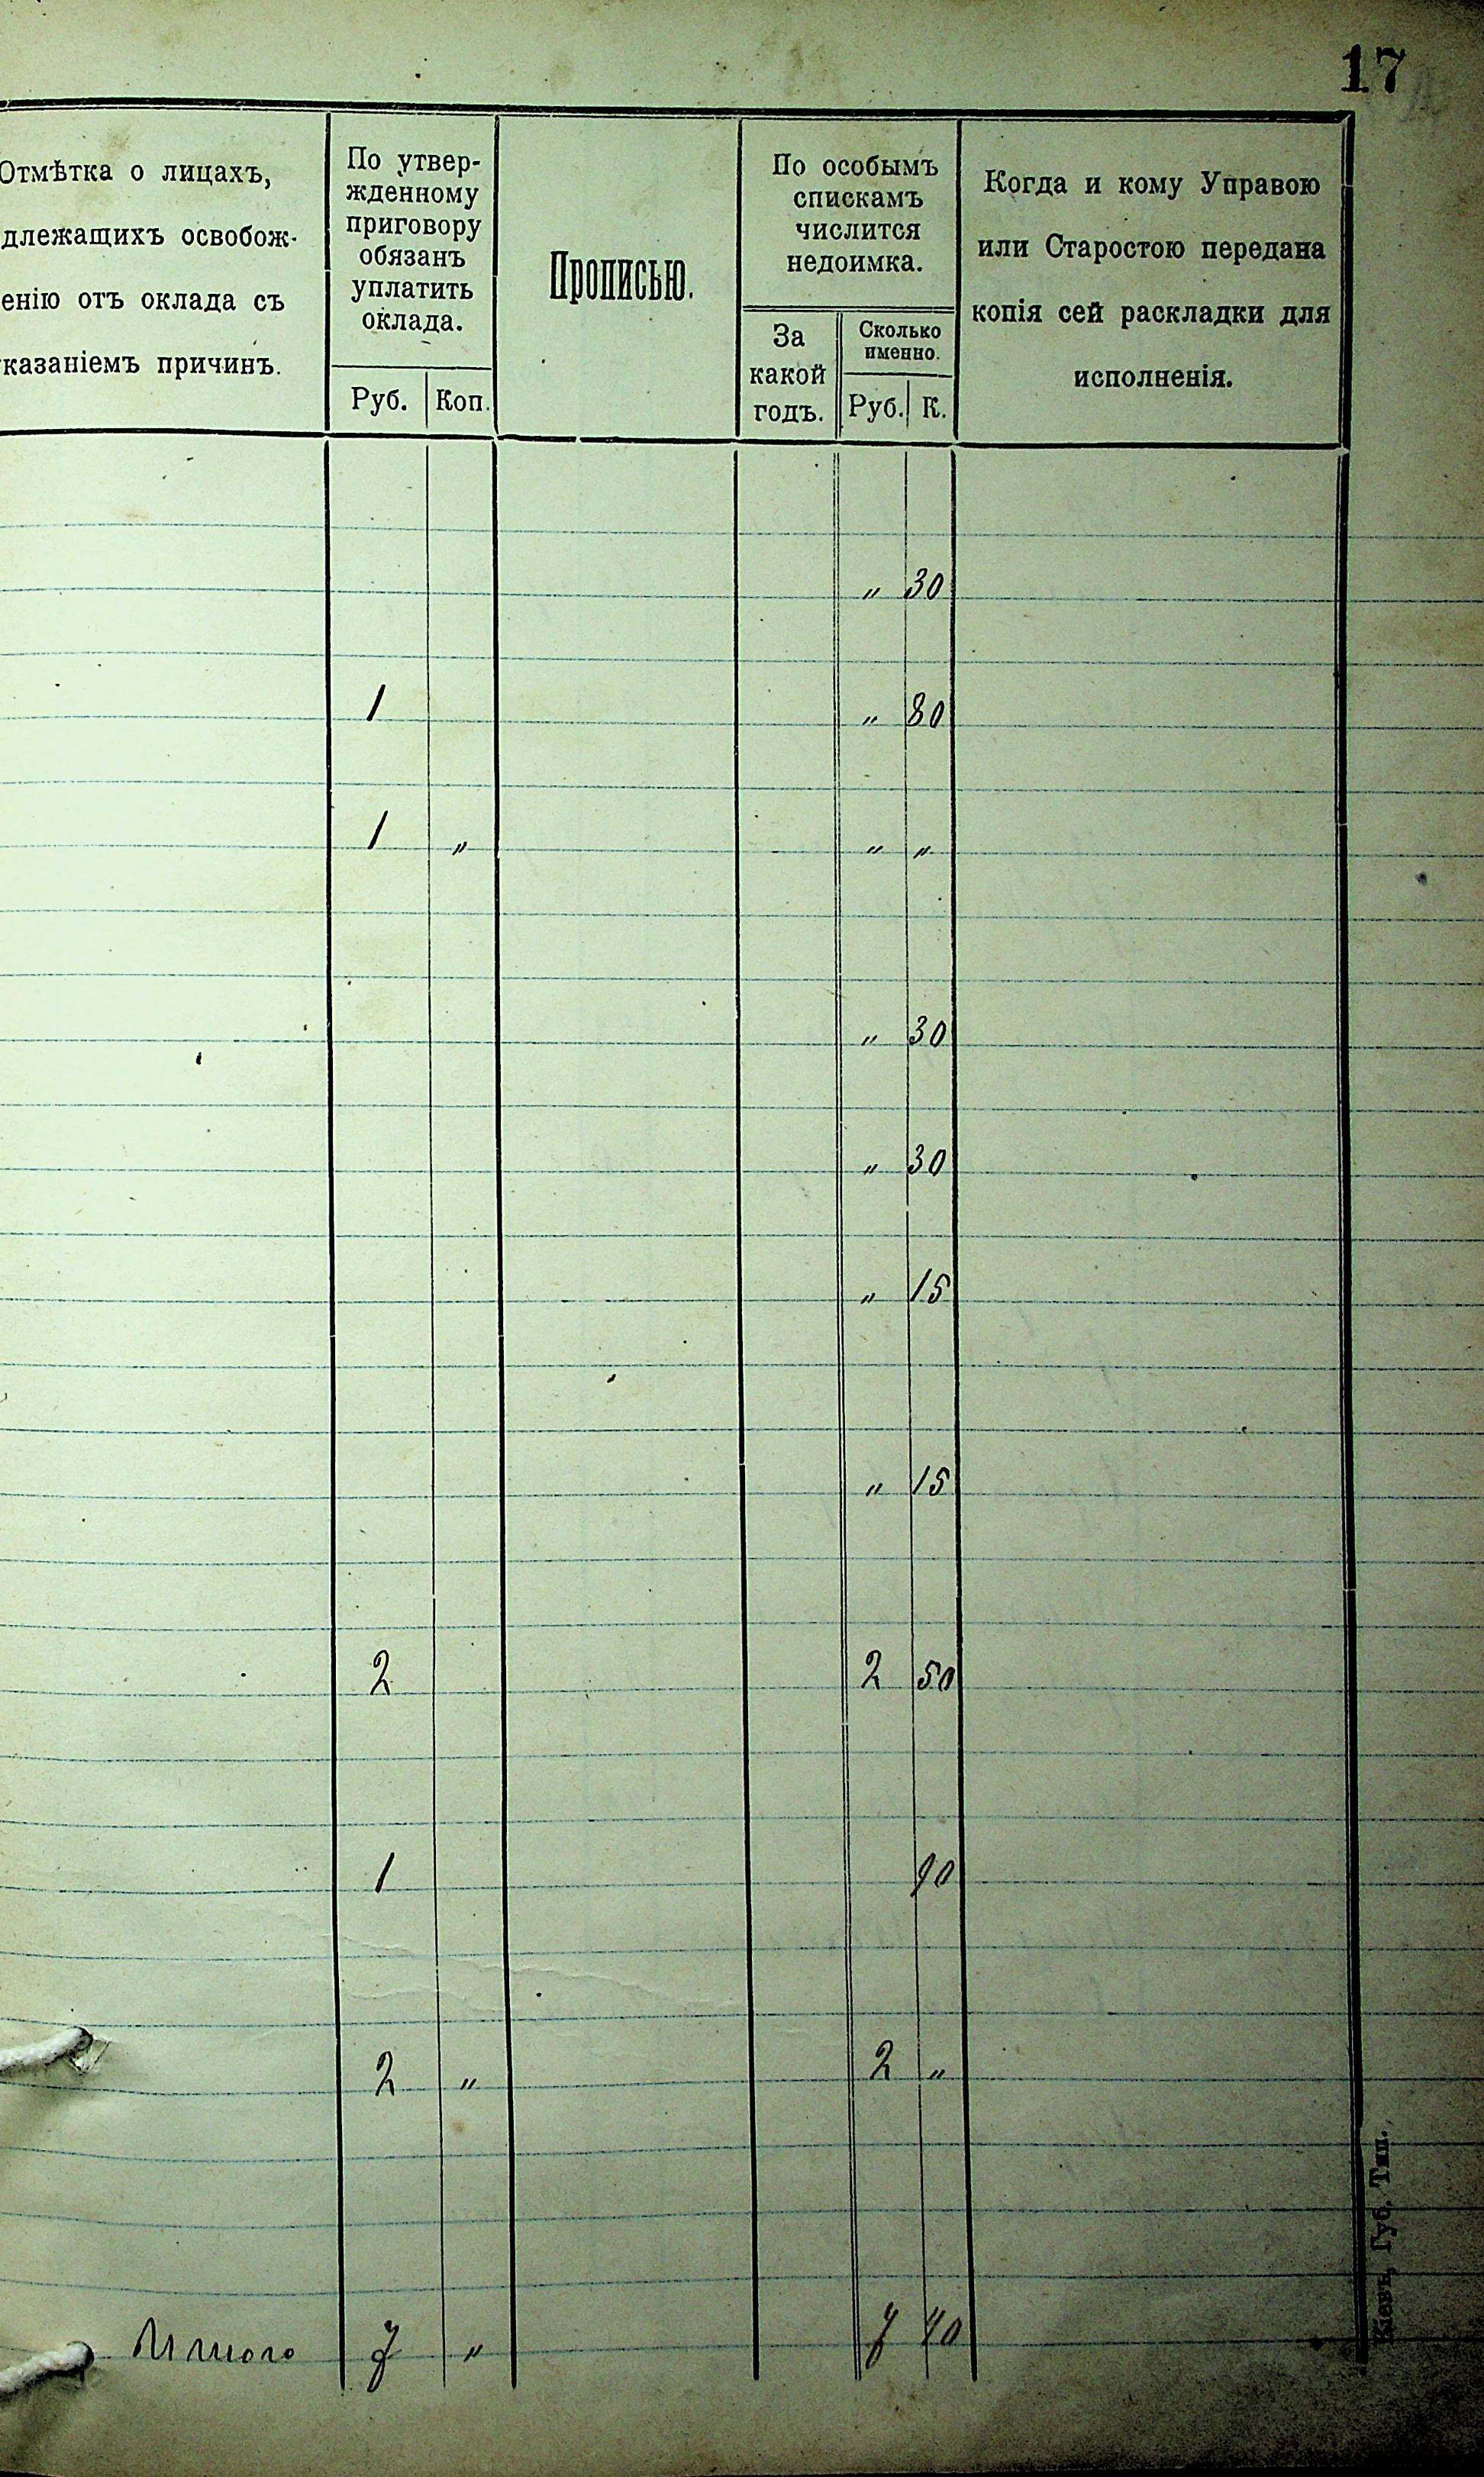 17
Отмѣтка о лицахъ,
длежащихъ освобож-
енію отъ оклада съ
казаніемъ причинъ.
По утвер-
жденному
приговору
обязанъ
уплатить
оклада.
Руб. Коп.
Прописью.
По особымъ
спискамъ
числится
недоимка.
За
какой
годъ.
Сколько
именно.
Руб. К.
Когда и кому Управою
или Старостою передана
копія сей раскладки для
исполненія.
„ 30
1 „ 80
1 „ „ „
„ 30
„ 30
„ 15
„ 15
2 2 50
1 90
2 „ 2 „
Итого 7 „ 7 40
Кіевъ, Губ. Тип.